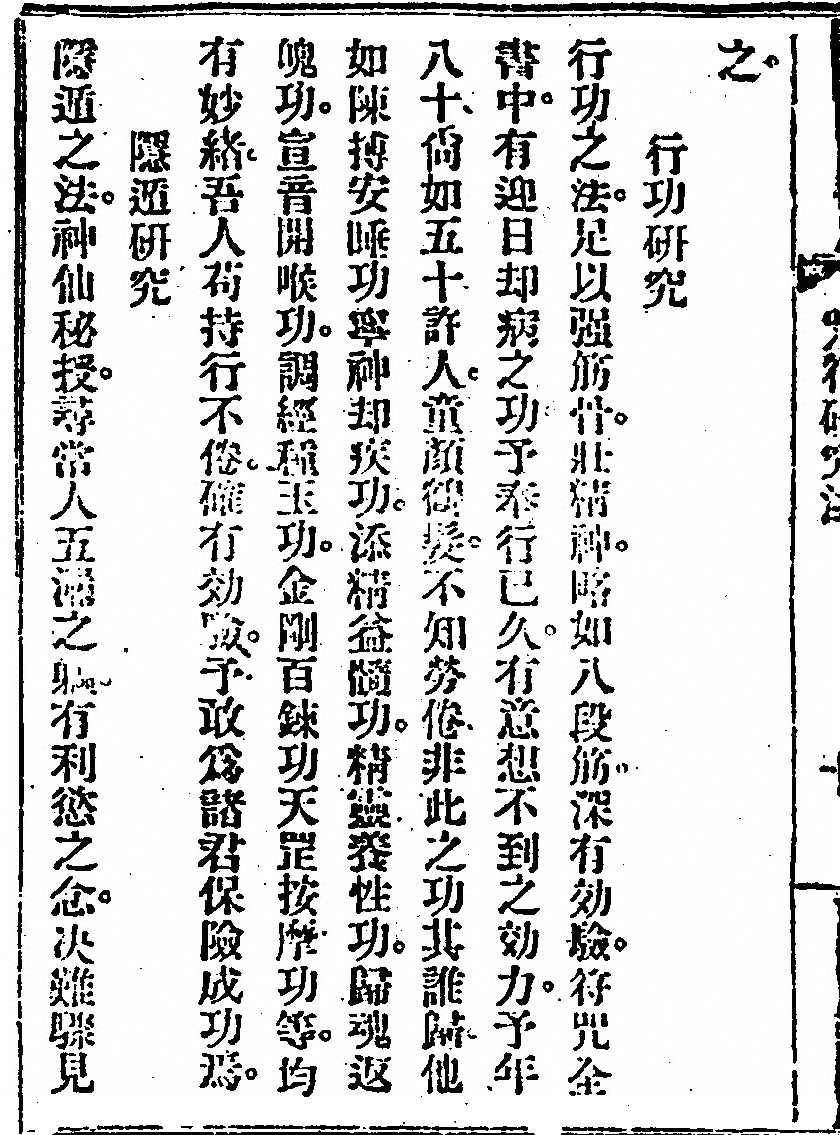 之。
行功研究
行功之法。足以强筋骨。壯精神。略如八段筋。深有効驗。符咒全
書中。有迎日却病之功予奉行已久。有意想不到之効力。予年
八十、尙如五十許人。童顏鶴髮。不知勞倦、非此之功其誰歸。他
如陳摶安睡功寧神却疾功。添精益髓功。精靈養性功。歸魂返
魄功。宣音開喉功。調經種玉功。金剛百鍊功天罡按摩功等。均
有妙緒。吾人苟持行不倦。確有効驗。予敢爲諸君保險成功焉。
隱遁研究
隱遁之法。神仙秘授。尋常人五濁之軀。有利慾之念。决難驟見